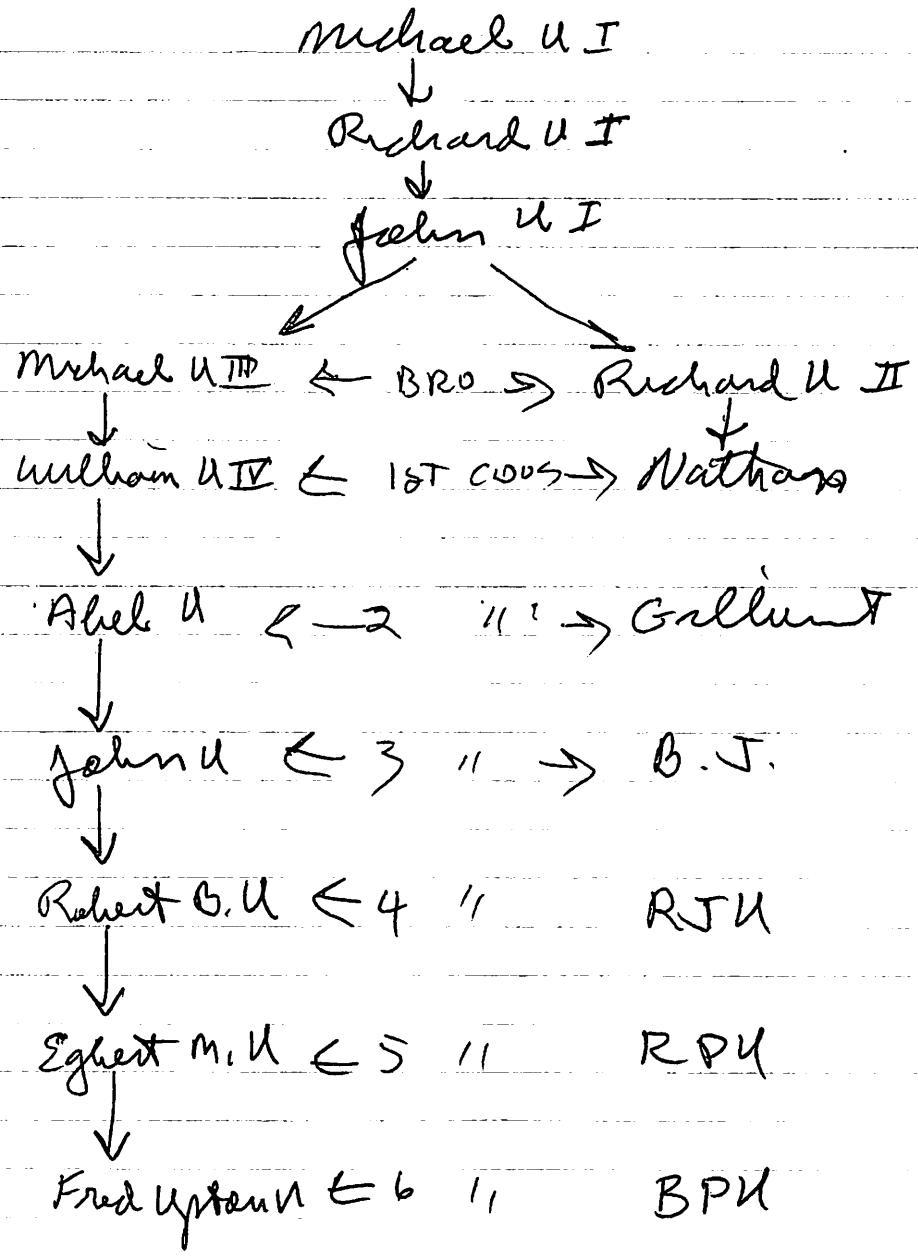 Michael U I
Richard U I
John U I
Michael U III ← BRO → Richard U II
William U IV ← 1ST COUS → Nathan
Abel U ← 2 " →
John U ← 3 " → B.J.
Robert B. U ← 4 " RJU
Egbert M. U ← 5 " RPU
Fred Upton U ← 6 " BPU